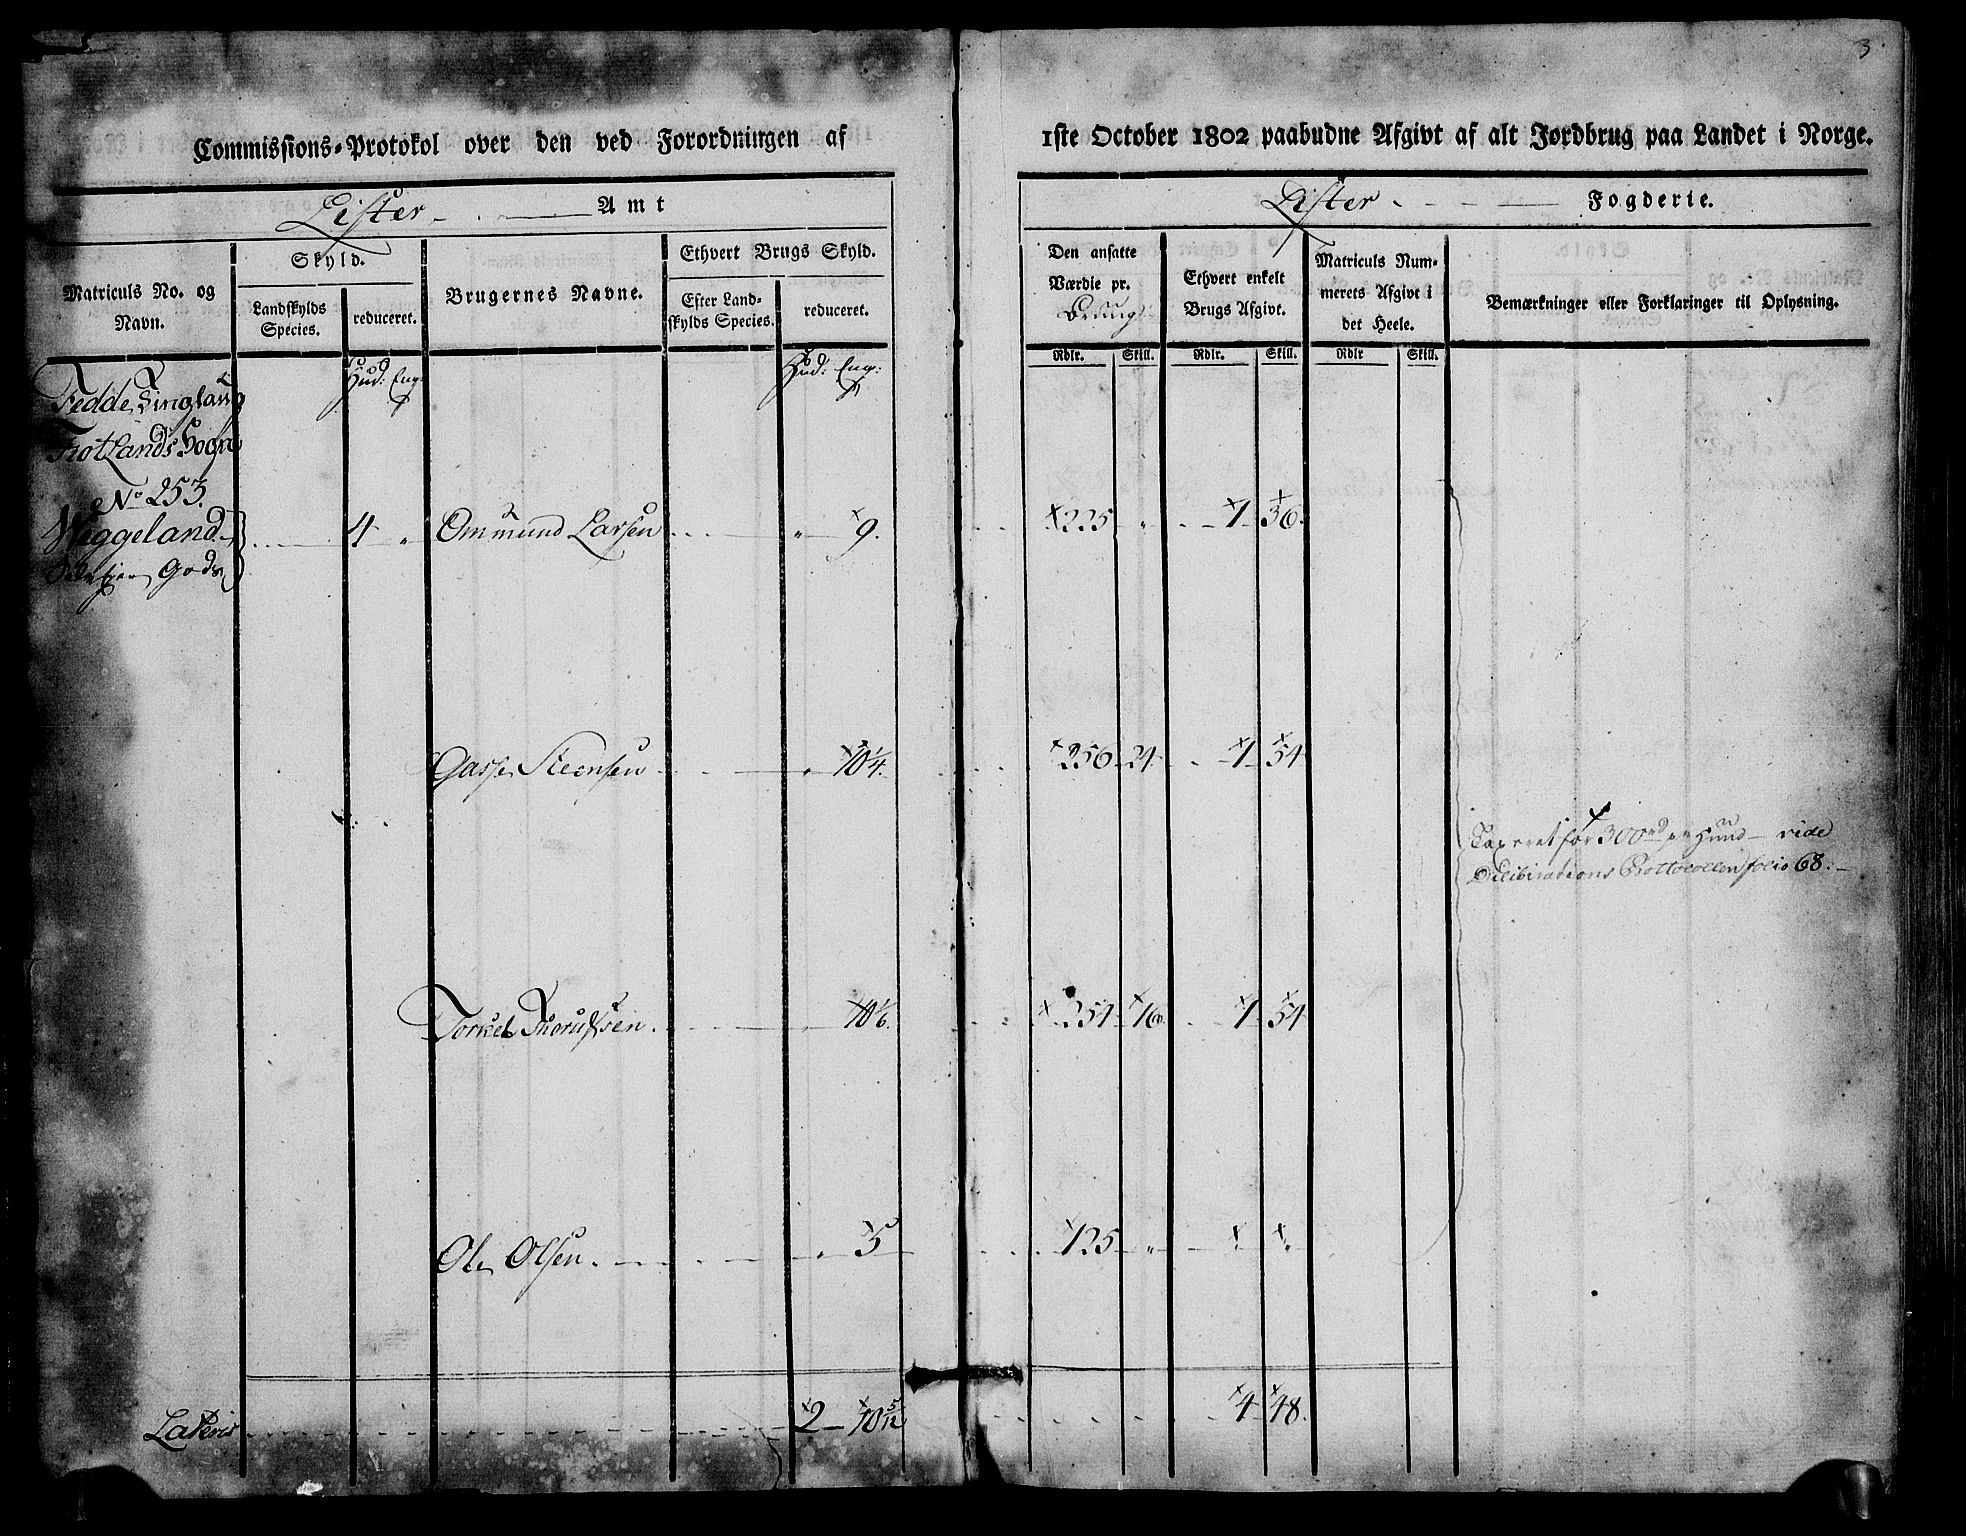 3.
Commissions-Protokol over den ved Forordningen af 1ste October 1802 paabudne Afgivt af alt Jordbrug paa Landet i Norge.
Lister Amt
Lister Fogderie.
Matriculs No. og Navn.
Skyld.
Landskylds Species.
reduceret.
Brugernes Navne.
Ethvert Brugs Skyld.
Efter Landskylds Species.
reduceret.
Den ansatte Værdie pr. Brug
Ethvert enkelt Brugs Afgivt.
Matriculs Nummerets Afgivt i det Heele.
Bemærkninger eller Forklaringer til Oplysning.
Hud: Eng:
Hud: Eng:
Rdlr. Skill. Rdlr. Skill. Rdlr Skill.
Fedde Tinglaug
Sogn
No 253.
Weggeland 4 " Ommund Larsen " 9. 225 " 1 36.
Gods
Steensen " 10 1/4. 256 24 1 54
Taxeret for 300 rd pr Huud vide
Deliberations Prottocollen folio 68.
Torkel " 10 1/6. 254 16 1 54
Ole Olsen " 5 125 "
Lateris 2 10 5/12 4 48.